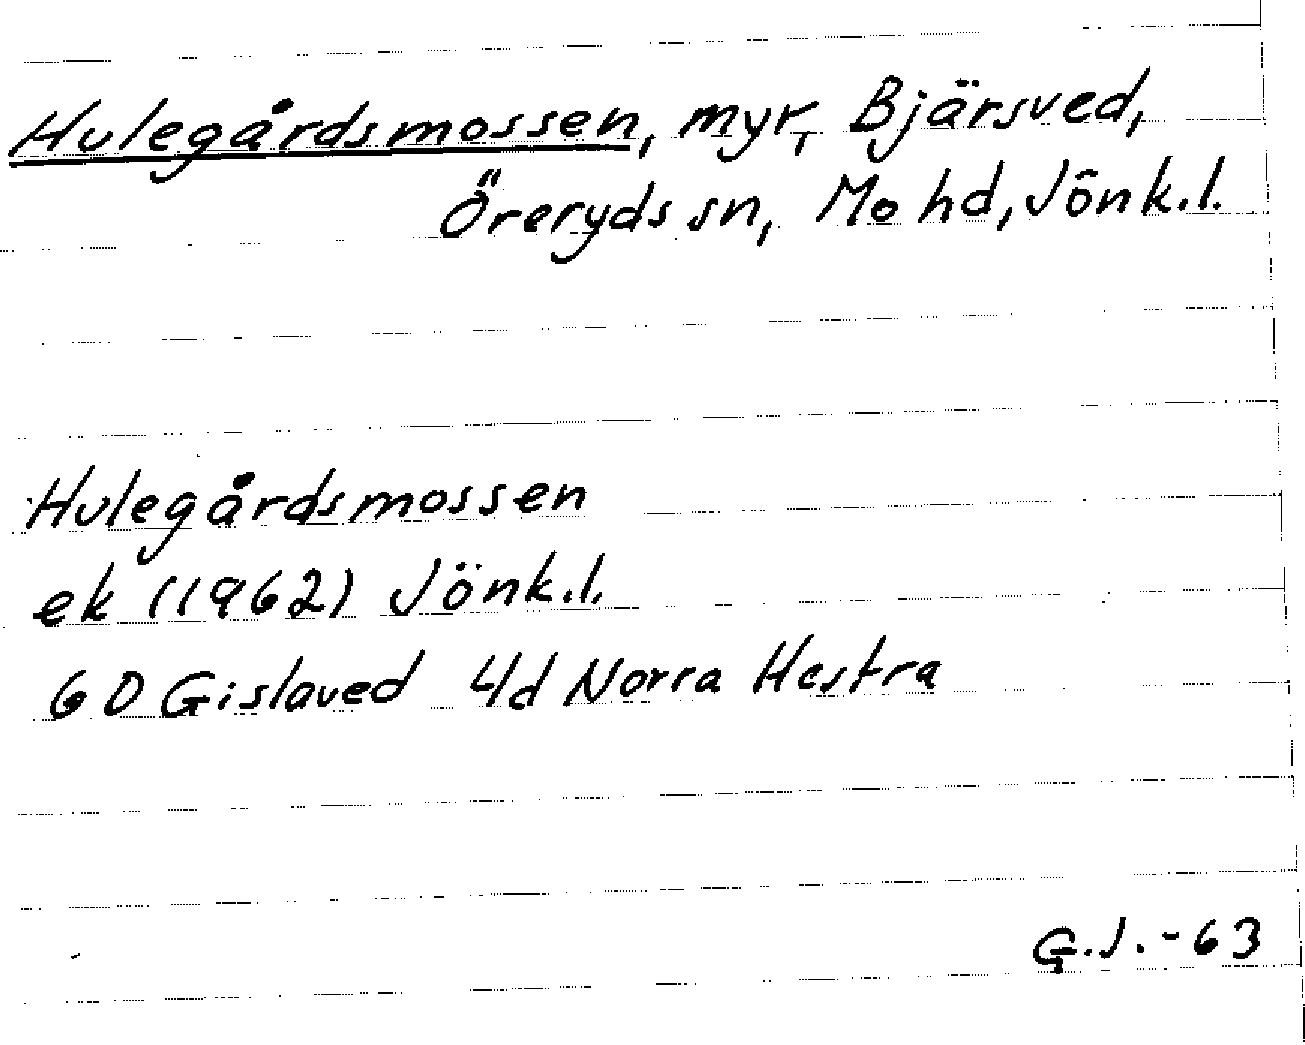 Hulegårdsmossen, myr, Bjärsved,
Öreryds sn, Mo hd, Jönk.l.
Hulegårdsmossen
ek (1962) Jönk.l.
6D Gislaved 4d Norra Hestra
G.J.-63